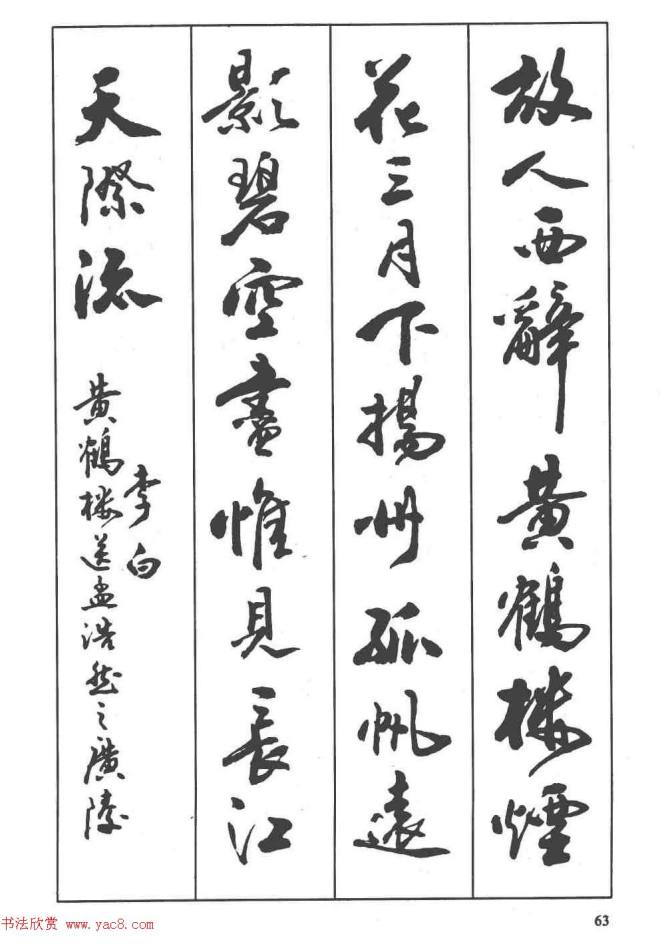 故人西辭黃鶴樓煙
花三月下揚州孤帆遠
影碧空盡惟見長江
天際流
李白
黃鶴樓送孟浩然之廣陵
63
书法欣赏 www.yac8.com